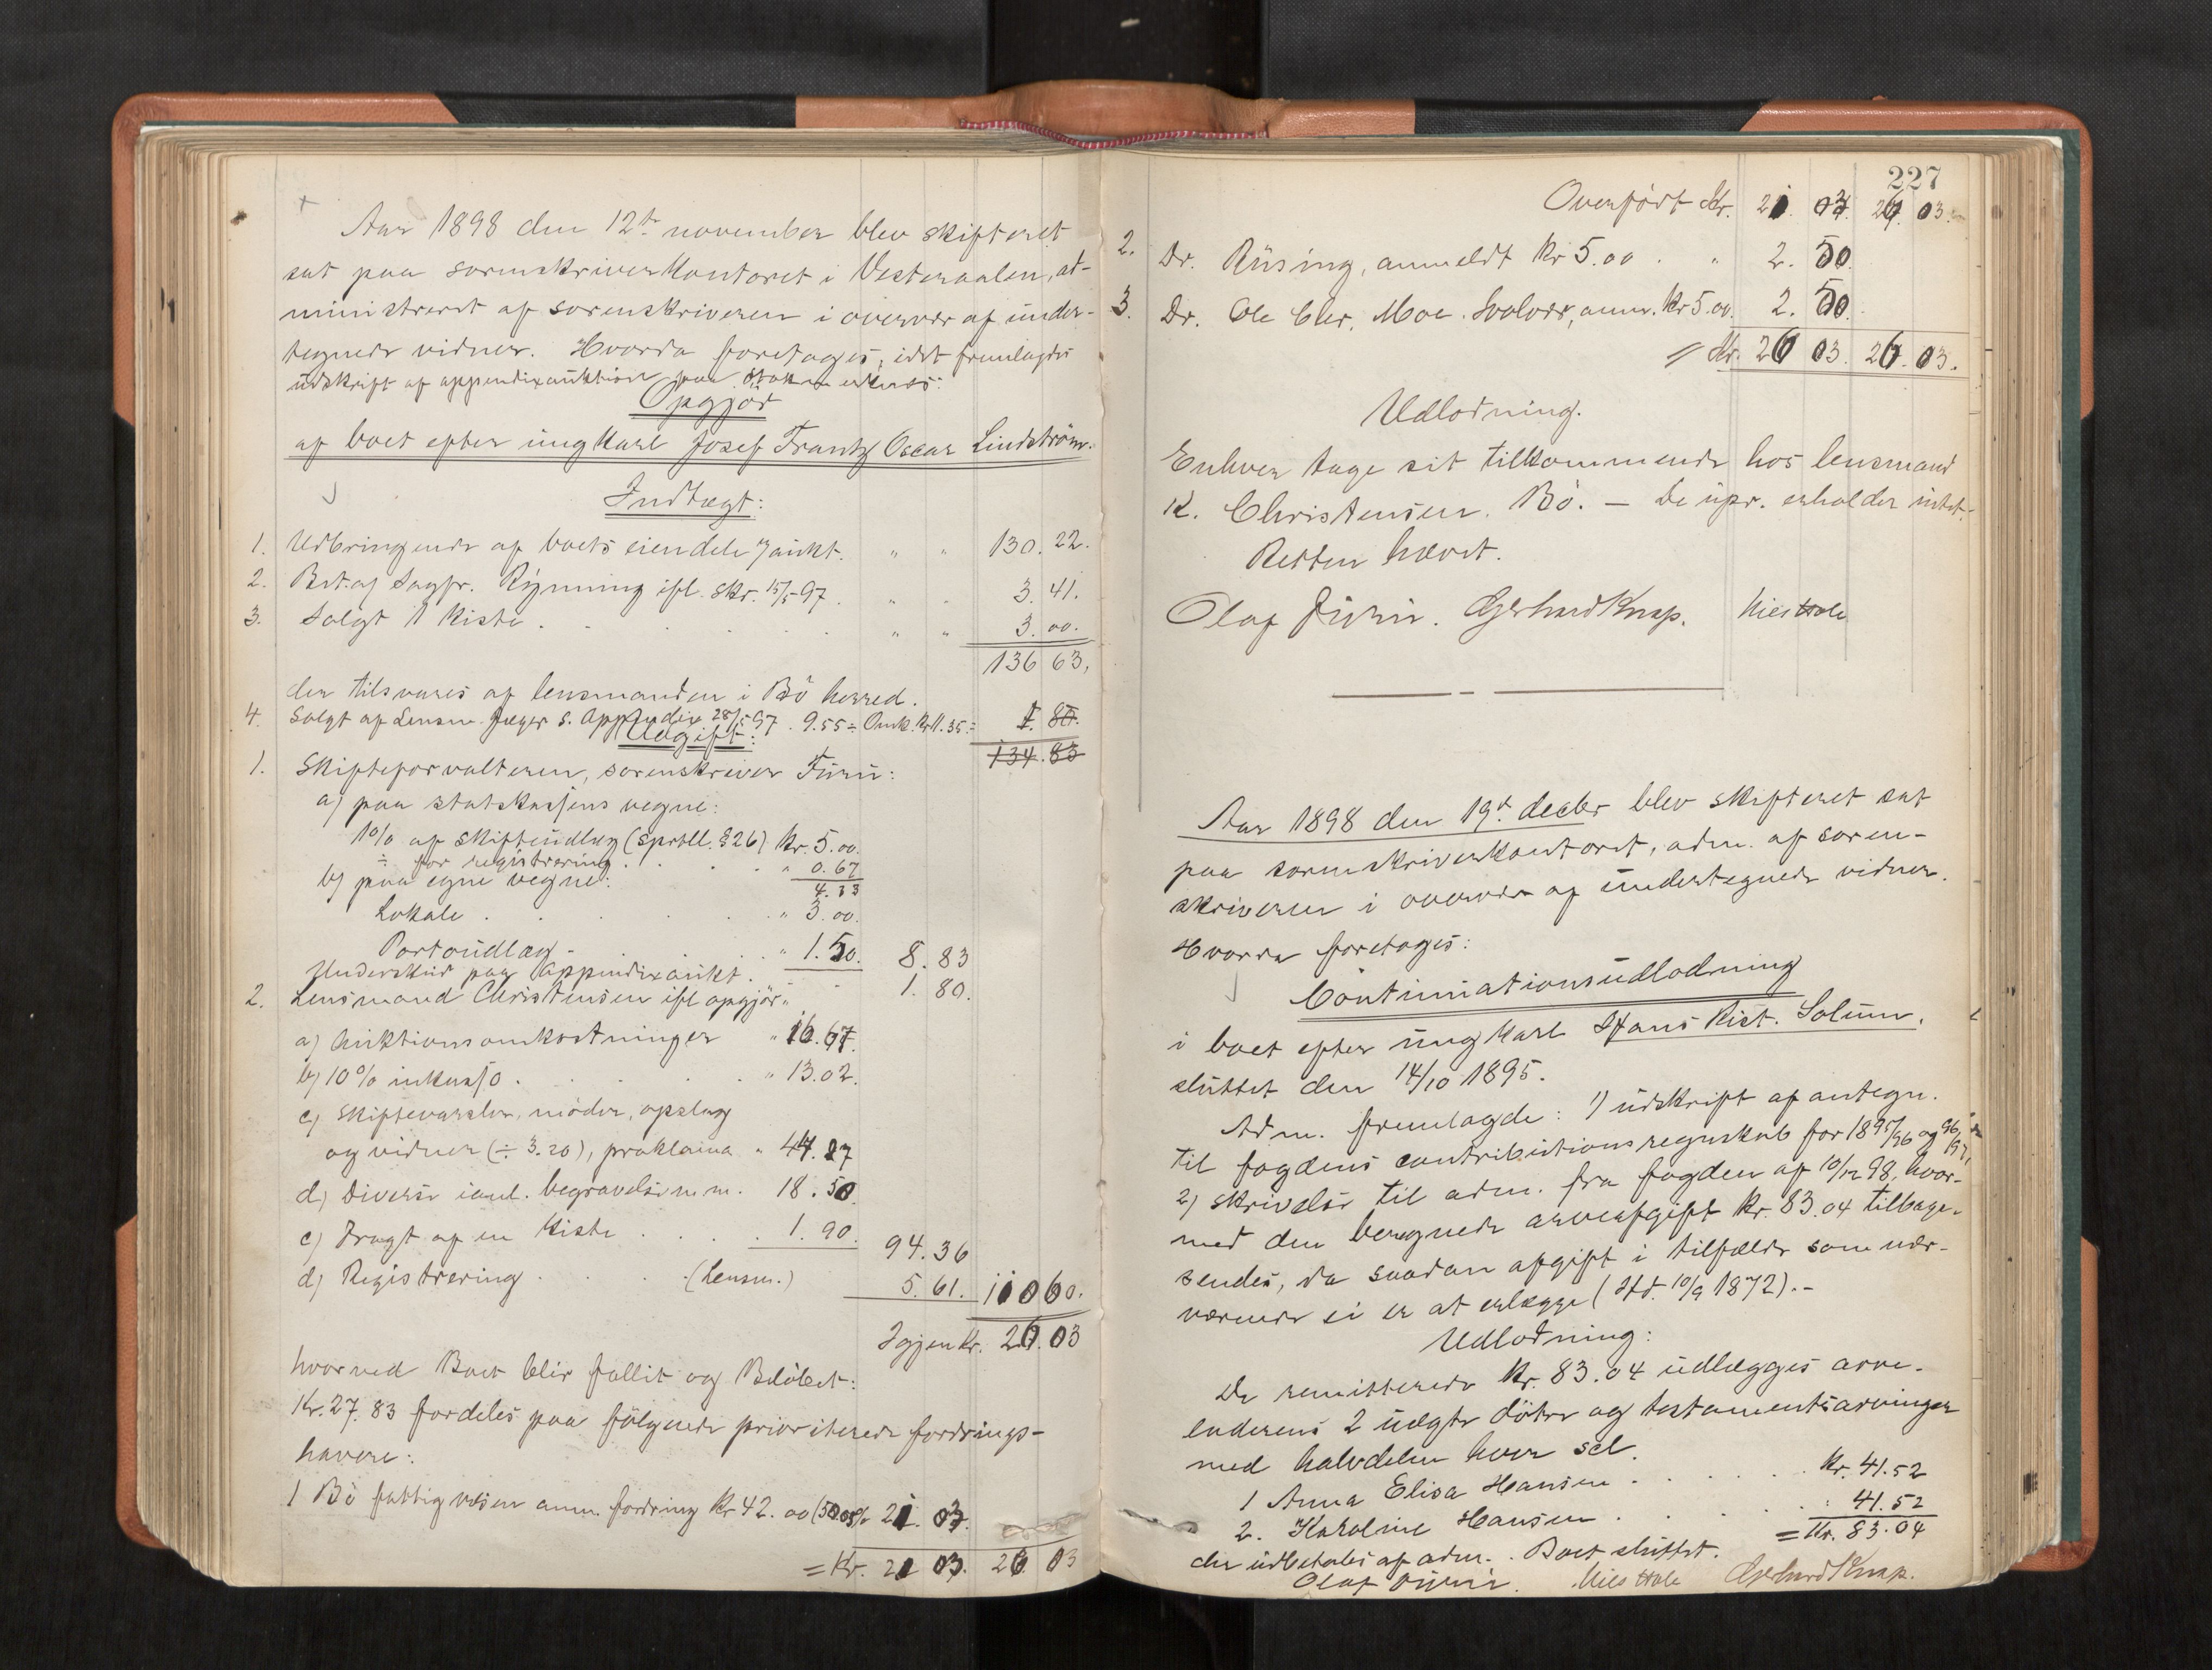 Aar 1898 den 12te november blev skifteret
sat paa sorenskriverkontoret i Vesteraalen, ad-
ministreret af sorenskriveren i overvær af under-
tegnede vidner. Hvorda foretages, idet fremlagdes
udskrift af appendixauktion paa
Opgjør
af boet efter ungkarl Josef Frantz Oscar Lindstrøm.
Indtægt:
1. Udbringende af boets eiendele / aukt. " " 130. 22.
2. Bet. af Sagfr. Rynning ifl. skr. 15/5 97. " 3. 41.
3. Solgt 1 kiste . . . . . " " 3. 00.
136 63.
der tilsvares af lensmanden i Bø herred.
4. Solgt af Lensm. Jæger s. Appendix 28/5 97. 9.55 ÷ Omk. Kr. 11.35 =
Udgift: 134.83
1. Skifteforvalteren, sorenskriver Furu:
a) paa statskassens vegne:
1% af skifteudlæg (sportll. §26) Kr. 5.00.
÷ for registrering . . . " 0.67
b) paa egne vegne: 4.33
Lokale . . . . . " 3.00.
Portoudlæg - . . . " 1.50. 8.83
Underskud paa Appendixaukt. . - 1.80.
2. Lensmand Christensen ifl opgjør "
a) Auktionsomkostninger " 16.67.
b) 10% inkasso . . . . " 13.02.
c) Skiftevarsler, møder, opslag
og vidner (÷ 3.20), proklama " 44.27
d) Diverse incl. begravelse m.m. 18.50
e) Fragt af en kiste . . . . 1.90. 94.36
d) Registrering . . . (Lensm.) 5.61. 110 60.
Igjen Kr. 26.03
hvorved Boet blir fallit og Beløbet:
Kr. 27.83 fordeles paa følgende prioriterede fordrings-
havere:
1 Bø fattigvæsen anm. fordring Kr 42.00 21. 03.
= Kr. 21 03. 26. 03
227
Overført Kr. 21. 03. 26. 03.
2. Dr. Rüsing, anmeldt Kr 5.00 . " 2. 50.
3. Dr. Ole Chr. Moe. Svolvær, anm. Kr 5.00. 2. 50.
= Kr. 26 03. 26. 03.
Udlodning.
Enhver tage sit tilkommende hos lensmand
K. Christensen. Bø. — De upr. erholder intet.
Retten hævet.
Olaf Furu. Gerhard Knap. Nils Hole
Aar 1898 den 19de decbr blev skifteret sat
paa sorenskriverkontoret, adm. af soren-
skriveren i overvær af undertegnede vidner.
Hvorda foretages:
Continuationsudlodning
i boet efter ungkarl Hans Kist. Solum,
sluttet den 14/10 1895.
Adm. fremlagde: 1) udskrift af antegn.
til fogdens contributionsregnskab for 1895/96 og 96/97,
2) skrivelse til adm. fra fogden af 10/12 98, hvor-
med den beregnede arveafgift Kr. 83.04 tilbage-
sendes, da saadan afgift i tilfælde som nær-
værende ei er at erlægge (Hfd. 10/9 1872).-
Udlodning:
De remitterede Kr. 83.04 udlægges arve-
laderens 2 uægte døtre og testamentsarvinger
med halvdelen hver sel.
1 Anna Elisa Hansen . . . . . Kr. 41.52
2. Karoline Hansen . . . . " 41.52
= Kr. 83.04
der udbetales af adm. . Boet sluttet.
Olaf Furu. Nils Hole Gerhard Knap.